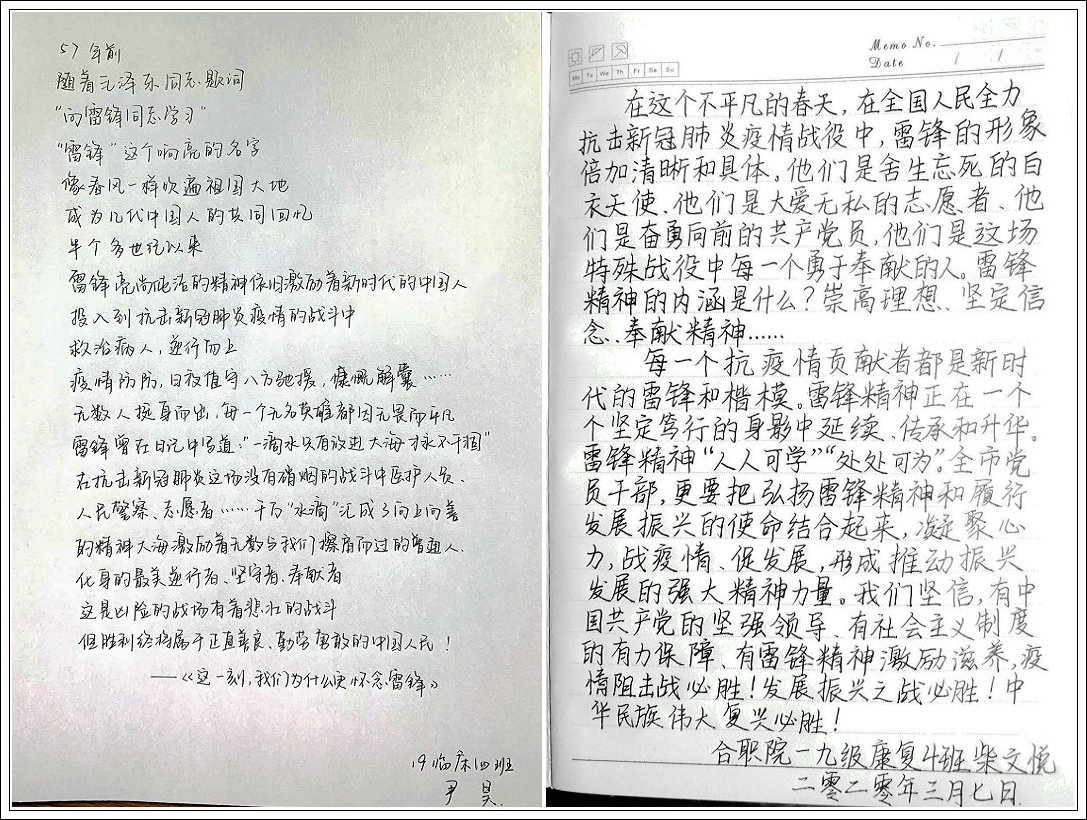 57年前
随着毛泽东同志题词
"向雷锋同志学习"
"雷锋"这个响亮的名字
像春风一样吹遍祖国大地
成为几代中国人的共同回忆
半个多世纪以来
雷锋高尚纯洁的精神依旧激励着新时代的中国人
投入到抗击新冠肺炎疫情的战斗中
救治病人,逆行而上
疫情防防,日夜值守八方驰援,慷慨解囊……
无数人挺身而出,每一个无名英雄都因无畏而平凡
雷锋曾在日记中写道:"一滴水只有放进大海才永不干涸"
在抗击新冠肺炎这场没有硝烟的战斗中医护人员、
人民警察、志愿者……千万"水滴"汇成了向上向善
的精神大海激励着无数与我们擦肩而过的普通人、
化身的最美逆行者、坚守者、奉献者
这是凶险的战场有着悲壮的战斗
但胜利终将属于正直善良、勤劳勇敢的中国人民!
——《这一刻,我们为什么更怀念雷锋》
19临床四班
尹昊
Memo No.
Date / /
Mo Tu We Th Fr Sa Su
在这个不平凡的春天,在全国人民全力
抗击新冠肺炎疫情战役中,雷锋的形象
倍加清晰和具体。他们是舍生忘死的白
衣天使、他们是大爱无私的志愿者、他
们是奋勇向前的共产党员,他们是这场
特殊战役中每一个勇于奉献的人。雷锋
精神的内涵是什么?崇高理想、坚定信
念、奉献精神……
每一个抗疫情贡献者都是新时
代的雷锋和楷模。雷锋精神正在一个
个坚定笃行的身影中延续、传承和升华。
雷锋精神"人人可学""处处可为"。全市党
员干部,更要把弘扬雷锋精神和履行
发展振兴的使命结合起来,凝聚心
力,战疫情、促发展,形成推动振兴
发展的强大精神力量。我们坚信,有中
国共产党的坚强领导、有社会主义制度
的有力保障、有雷锋精神激励滋养,疫
情阻击战必胜!发展振兴之战必胜!中
华民族伟大复兴必胜!
合职院一九级康复4班柴文悦
二零二零年三月七日